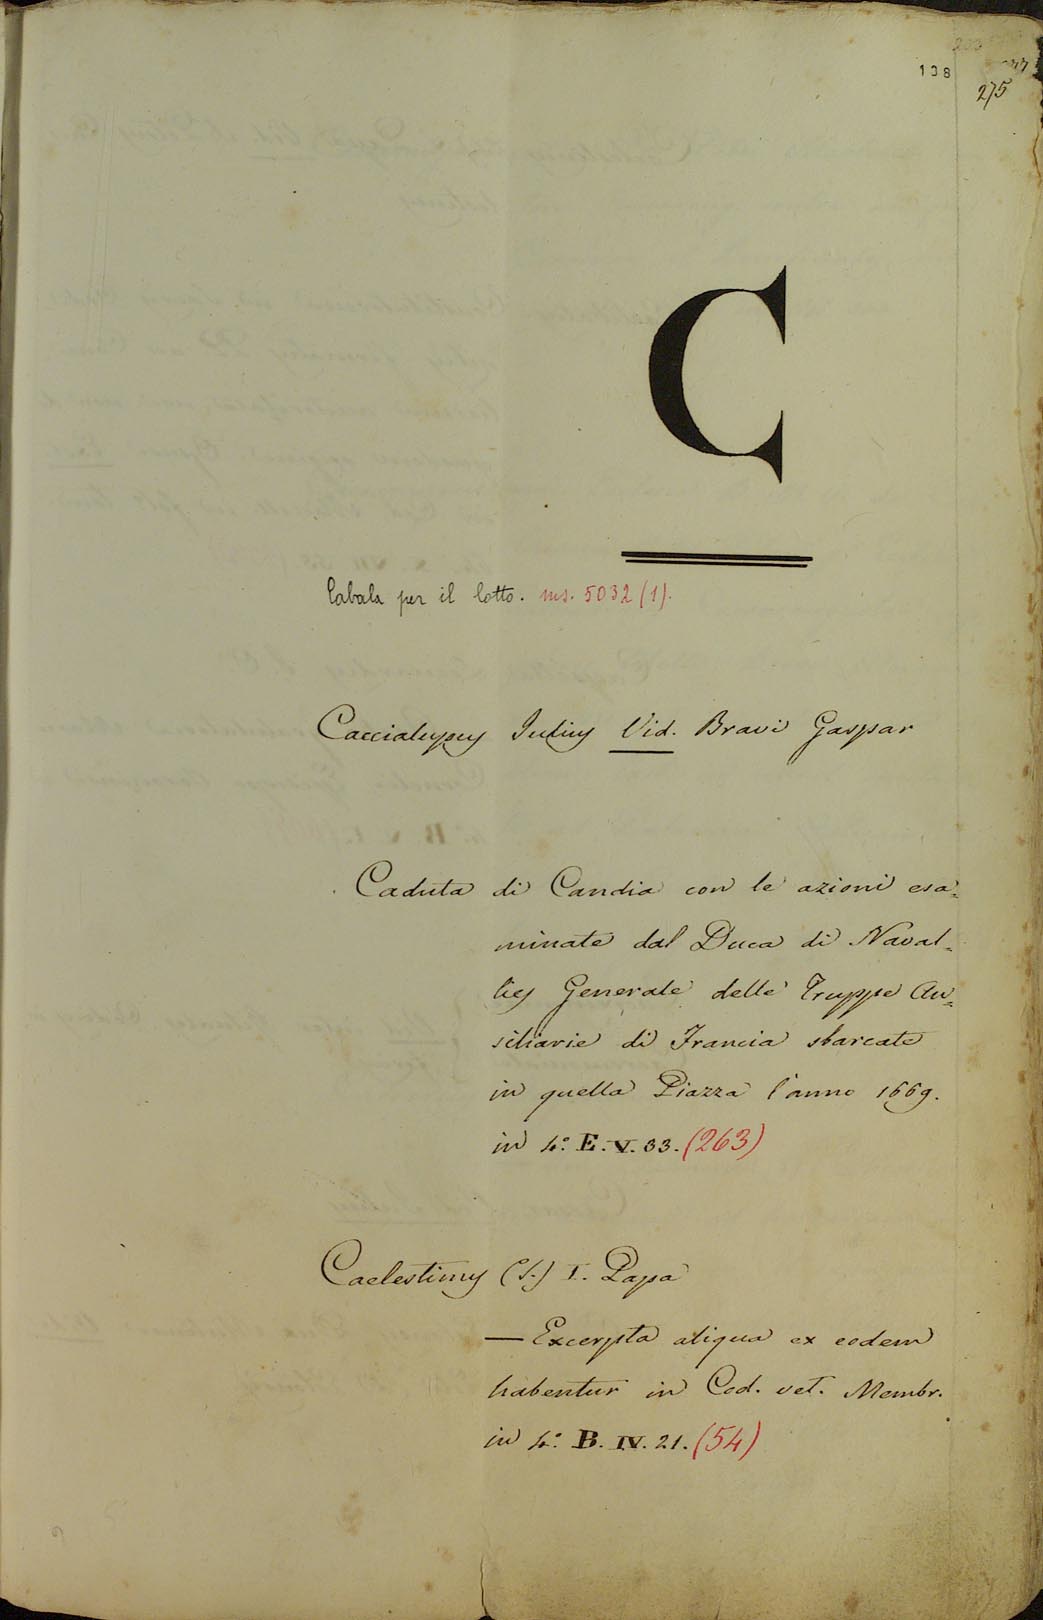 138
275
C
Cabala per il lotto. ms. 5032 (1).
Caccialupus Julius Vid. Bravi Gaspar
Caduta di Candia con le azioni esa=
minate dal Duca di Naval=
lies Generale delle Truppe Au=
siliarie di Francia sbarcate
in quella Piazza l'anno 1669.
in 4.º E. V. 33. (263)
Caelestinus (S.) I. Papa
— Excerpta aliqua ex eodem
habentur in Cod. vet. Membr.
in 4.º B. IV. 21. (54)